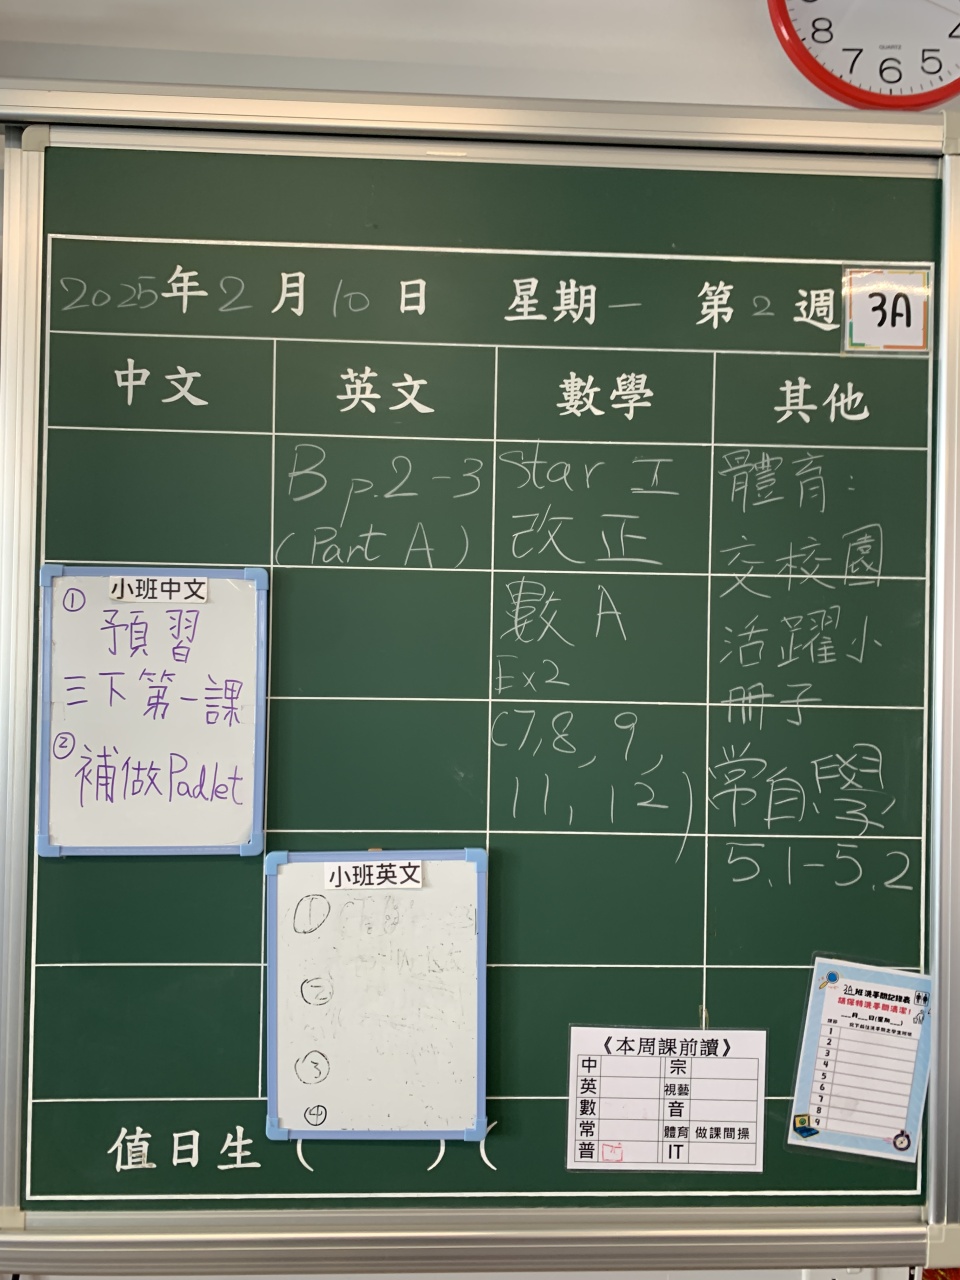 8
7
6
5
4
QUARTZ
2025年2月10日 星期一 第2週
3A
中文
英文
數學
其他
B p.2-3
(Part A)
Star 工
改正
數 A
Ex2
(7,8,9,
11,12)
體育:
交校園
活躍小
冊子
常自學
5.1-5.2
小班中文
① 預習
三下第一課
② 補做Padlet
小班英文
①
②
③
④
《本周課前讀》
中 宗
英 視藝
數 音
常 體育 做課間操
普 IT
3A班洗手間記錄表
請保持洗手間清潔!
__月__日(星期__)
1
2
3
4
5
6
7
8
9
值日生 ( ) (